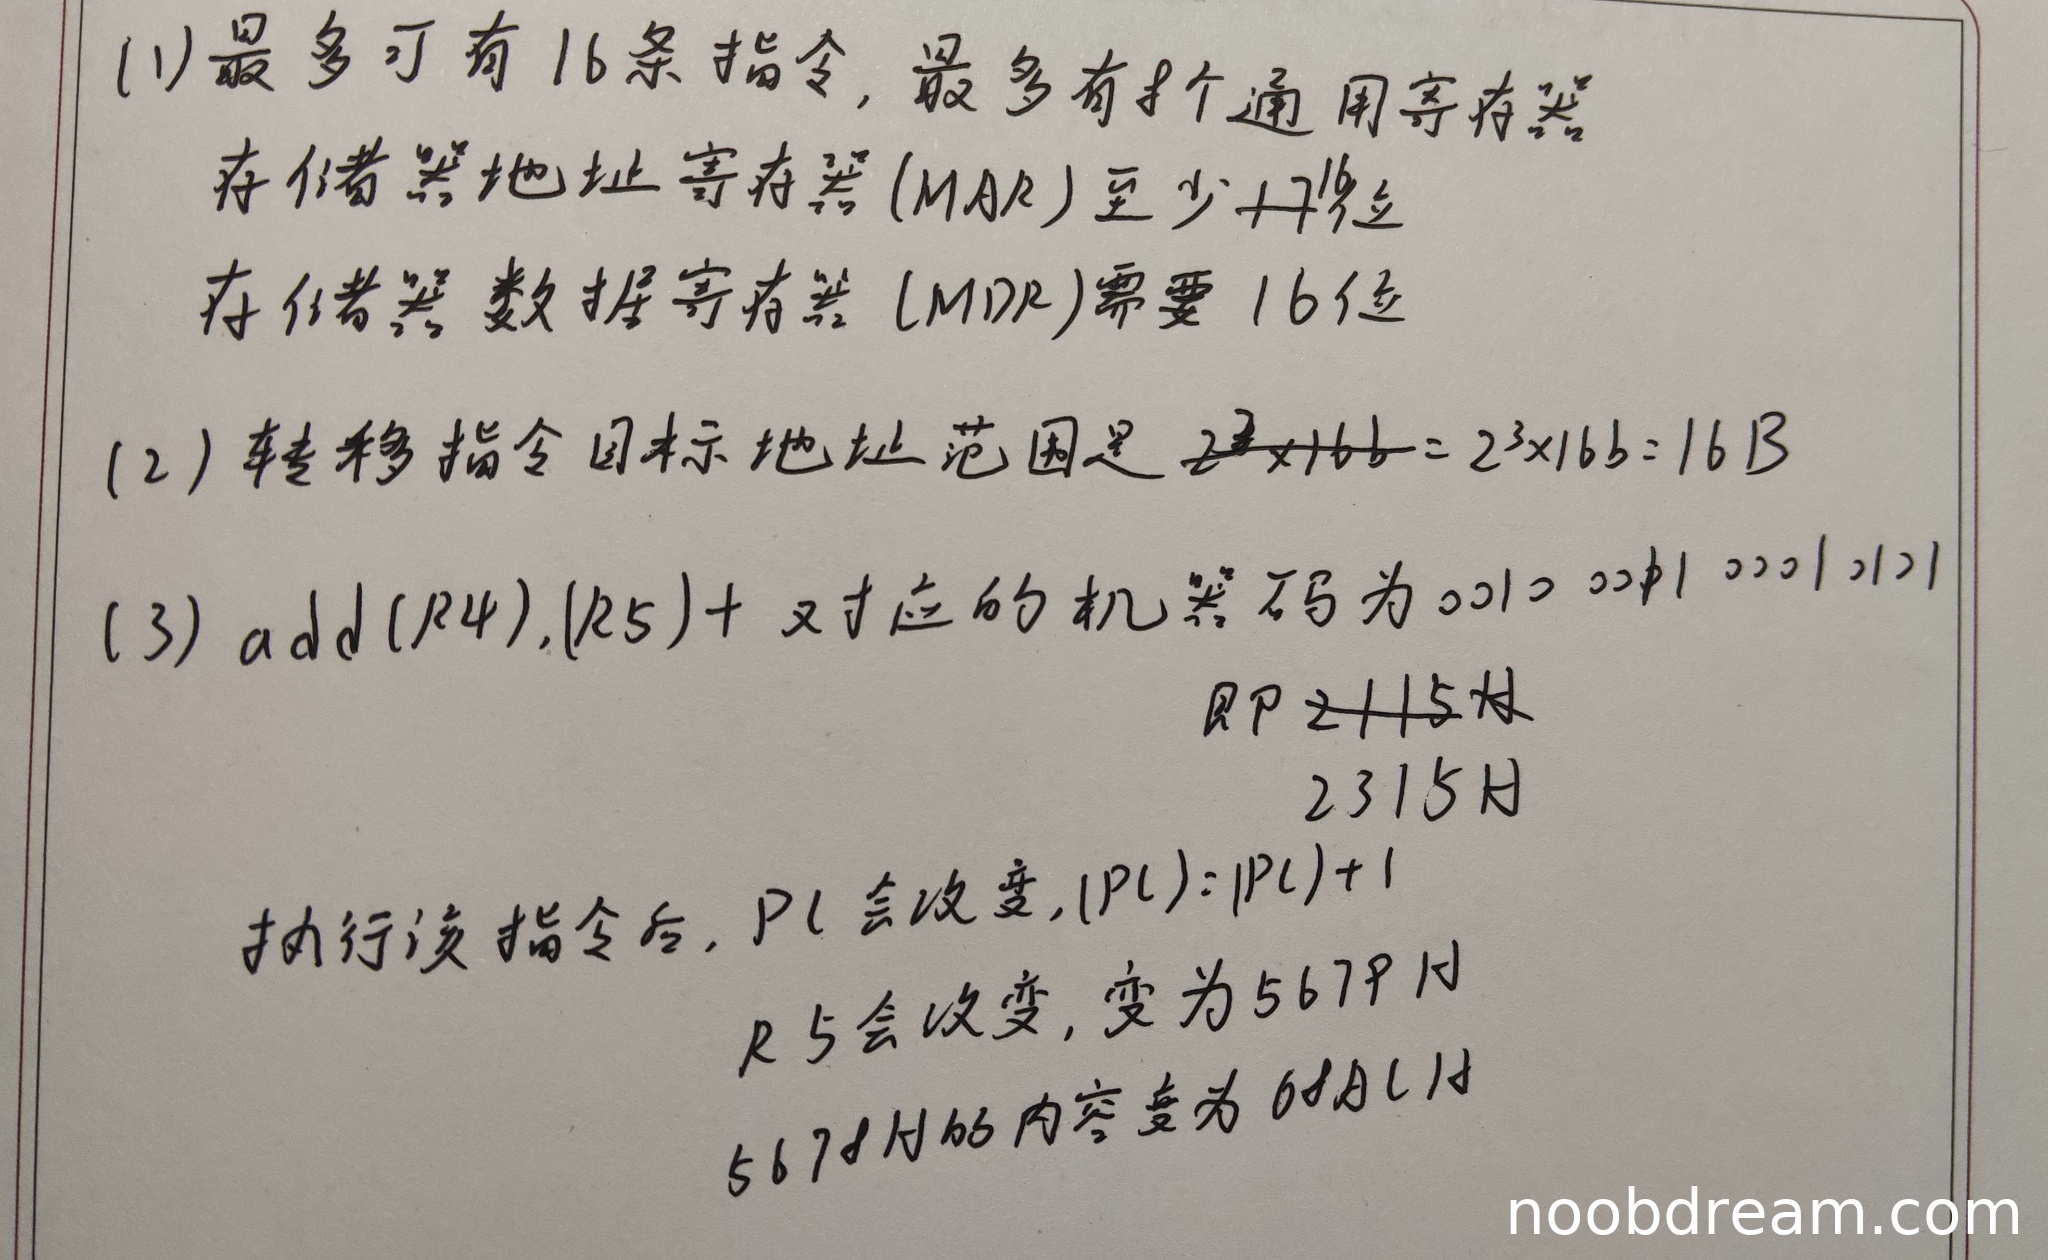 (1)最多可有16条指令,最多有8个通用寄存器
存储器地址寄存器(MAR)至少16位
存储器数据寄存器(MDR)需要16位
(2)转移指令目标地址范围是 2³×16b = 2³×16b=16B
(3)add(R4),(R5)+ 对应的机器码为0010 0011 0001 0101
即 2115H
2315H
执行该指令后,PC会改变,(PC)=(PC)+1
R5会改变,变为5679H
5678H的内容变为68ACH
noobdream.com